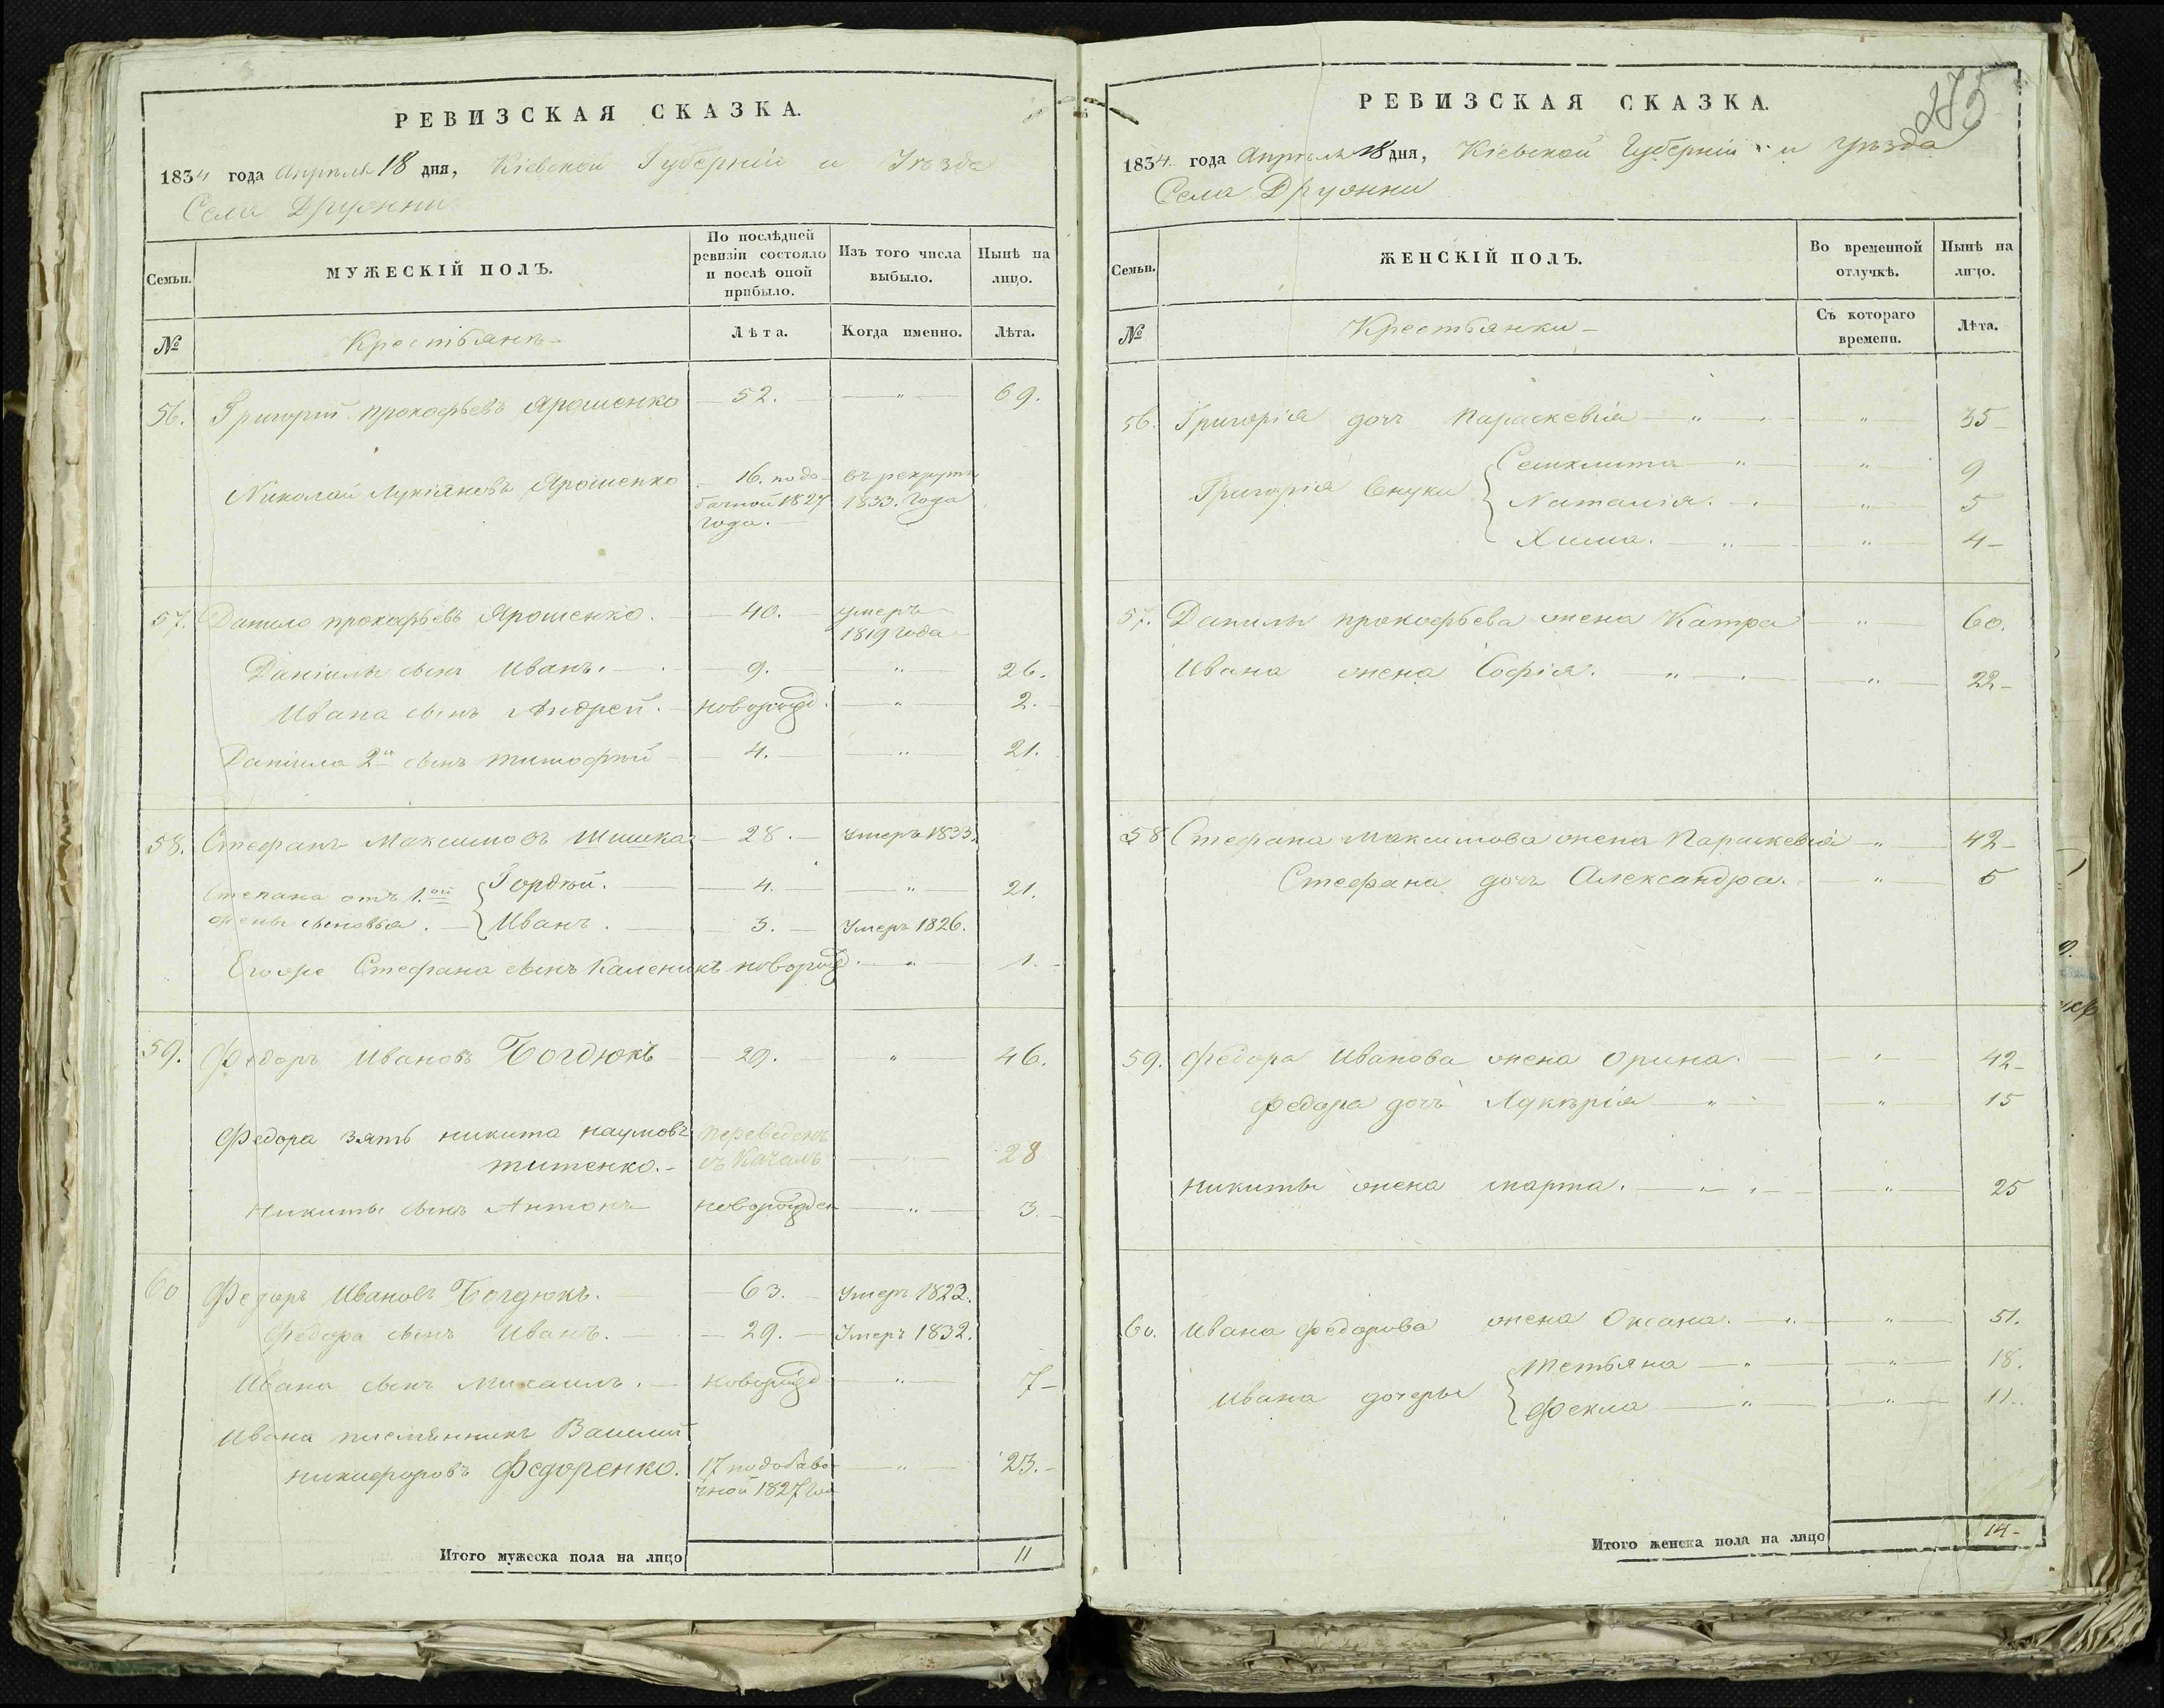 РЕВИЗСКАЯ СКАЗКА.
1834 года Апрѣля 18 дня, Кіевской Губерніи и Уѣзда
Села Дружни
Семьи.
МУЖЕСКІЙ ПОЛЪ.
По послѣдней ревизіи состояло и послѣ оной прибыло.
Изъ того числа выбыло.
Нынѣ на лицо.
№
Крестьянъ
Лѣта.
Когда именно.
Лѣта.
56. Григорій прокофьевъ Ярошенко 52. " 69.
Николай Лукіяновъ Ярошенко 16. по до- въ рекруты
бачной 1827 1833. Года
года.
57. Данило прокофьевъ Ярошенко. 40. умеръ
1819 года
Даніилы сынъ Иванъ. 9. " 26.
Ивана сынъ Андрей. новорожд. " 2.
Даніила 2й сынъ тимофѣй 4. " 21.
58. Стефанъ Максимовъ Шишка 28. Умеръ 1833.
Степана отъ 1.ой Гордѣй. 4. " 21.
жены сыновья. Иванъ. 3. Умеръ 1826.
Егоже Стефана сынъ Каленикъ новорожд. " 1.
59. Федоръ Ивановъ Богдюкъ 29. " 46.
Федора зять никита наумовъ переведенъ
титенко. 28
Никиты сынъ Антонъ новорожден " 3.
60 Федоръ Ивановъ Богдюкъ. 63. Умеръ 1822.
Федора сынъ Иванъ. 29. Умеръ 1832.
Ивана сынъ Михаилъ. новорожд " 7
Ивана племянникъ Василий
никифоровъ Федоренко. 17 по добаво- " 23.
чной 1827 Го
Итого мужеска пола на лицо 11
275
РЕВИЗСКАЯ СКАЗКА.
1834 года Апрѣля 18 дня, Кіевской Губерніи и Уѣзда
Села Дружни
Семьи.
ЖЕНСКІЙ ПОЛЪ.
Во временной отлучкѣ.
Нынѣ на лицо.
№
Крестьянки
Съ котораго времени.
Лѣта.
56. Григорія дочь Параскевія " " 35
Секлита " " 9
Григорія внуки Наталія. " 5
Хима. " " 4
57. Данилы прокофьева жена Катра " 60.
Ивана жена Софія. " " 22
58 Стефана Максимова жена Параскевія " 42
Стефана дочь Александра. " 5
59. Федора Иванова жена Орина. " 42
Федора дочь Лукѣрія " " 15
Никиты жена марта. " " 25
60. Ивана федорова жена Оксана. " " 51.
Тетьяна " " 18.
Ивана дочеры Фекла " " 11.
Итого женска пола на лицо 14